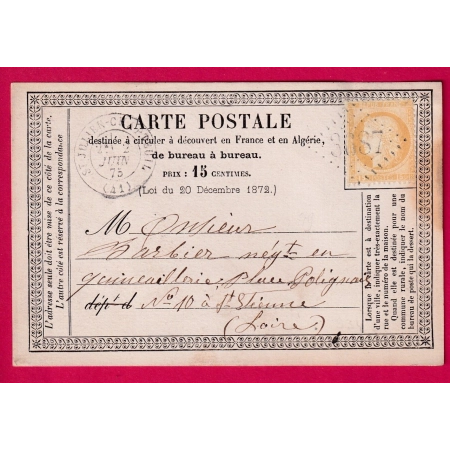 CARTE POSTALE
destinée à circuler à découvert en France et en Algérie,
de bureau à bureau.
PRIX : 15 CENTIMES.
(Loi du 20 Décembre 1872.)
JUIN
75
(41)
L'adresse seule doit être mise de ce côté de la carte.
L'autre côté est réservé à la correspondance
Monsieur
Barbier négt en
quincaillerie, Place Polignais
dépôt d N° 10 à St Etienne
(Loire)
Lorsque la carte est à destination
d'une ville, indiquer très-exactement la
rue et le numéro de la maison.
Quand elle est destinée pour une
commune rurale, indiquer le nom du
bureau de poste qui la dessert.